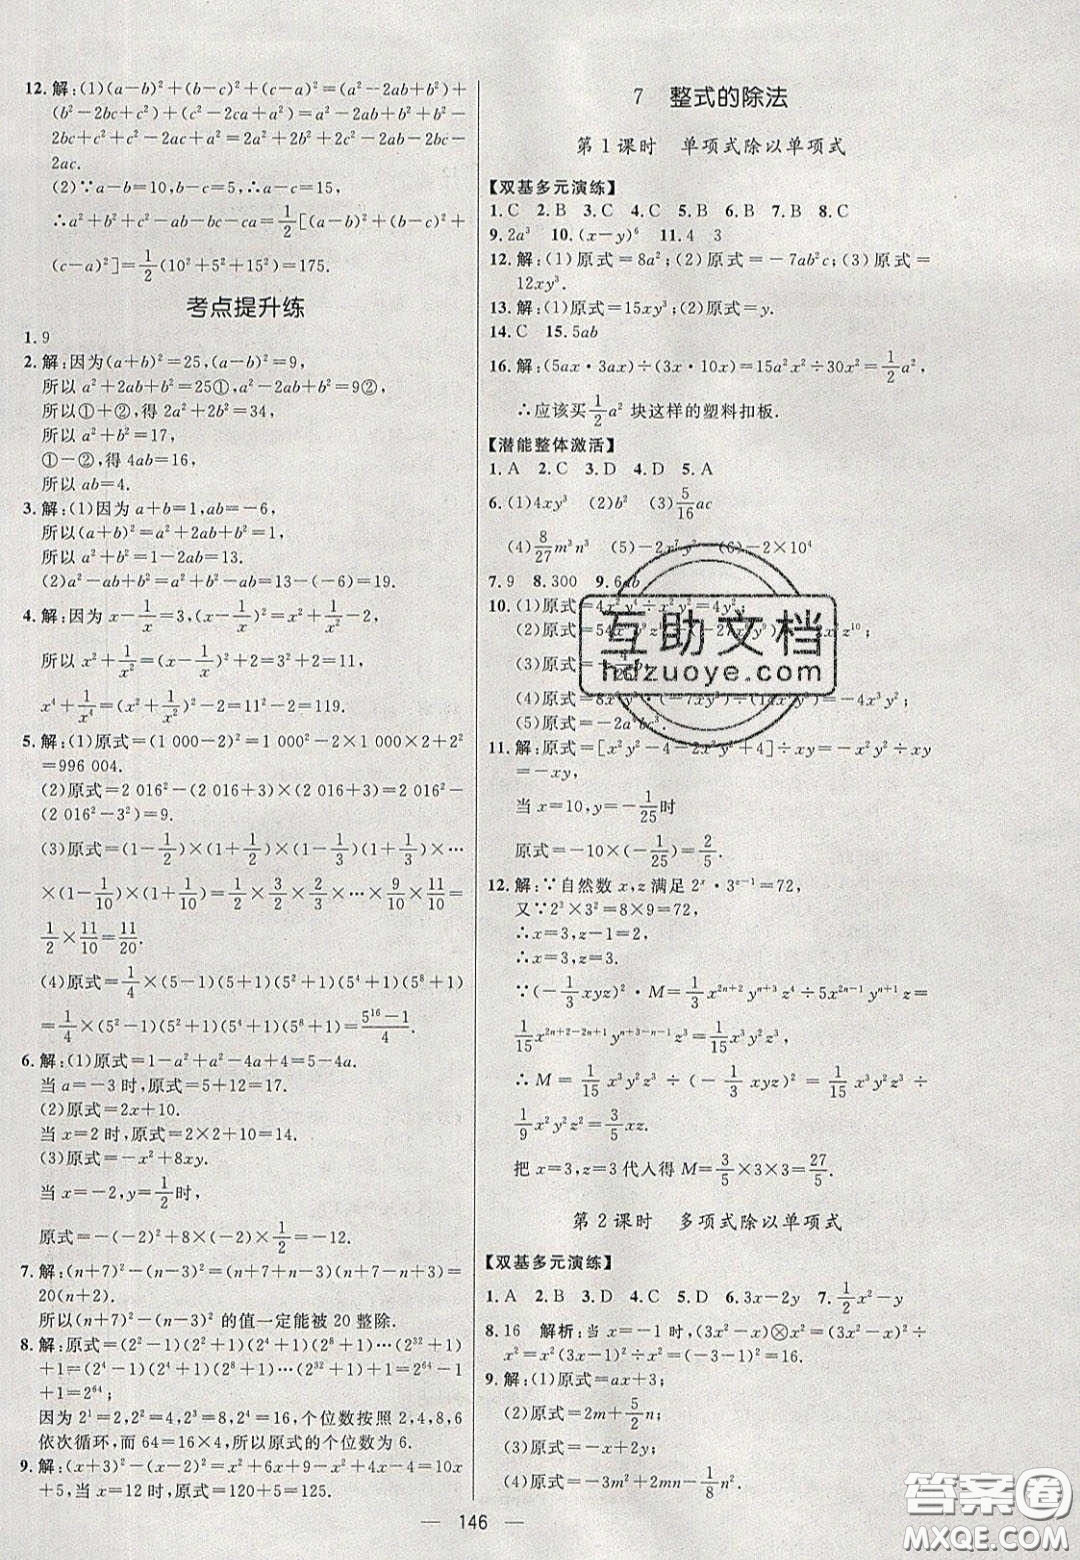 12. 解:(1)(a−b)²+(b−c)²+(c−a)²=(a²−2ab+b²)+
(b²−2bc+c²)+(c²−2ca+a²)=a²−2ab+b²+b²−
2bc+c²+c²−2ac+a²=2a²+2b²+2c²−2ab−2bc−
2ac.
(2)∵a−b=10,b−c=5,a−c=15,
∴a²+b²+c²−ab−bc−ca=1/2[(a−b)²+(b−c)²+
(c−a)²]=1/2(10²+5²+15²)=175.
考点提升练
1.9
2. 解:因为(a+b)²=25,(a−b)²=9,
所以 a²+2ab+b²=25①,a²−2ab+b²=9②,
所以①+②,得 2a²+2b²=34,
所以 a²+b²=17,
①−②,得 4ab=16,
所以 ab=4.
3. 解:(1)因为 a+b=1,ab=−6,
所以(a+b)²=a²+2ab+b²=1,
所以 a²+b²=1−2ab=13.
(2)a²−ab+b²=a²+b²−ab=13−(−6)=19.
4. 解:因为 x−1/x=3,(x−1/x)²=x²+1/x²−2,
所以 x²+1/x²=(x−1/x)²+2=3²+2=11,
x⁴+1/x⁴=(x²+1/x²)²−2=11²−2=119.
5. 解:(1)原式=(1 000−2)²=1 000²−2×1 000×2+2²
=996 004.
(2)原式=2 016²−(2 016+3)×(2 016−3)=2 016²−
(2 016²−3²)=9.
(3)原式=(1−1/2)×(1+1/2)×(1−1/3)(1+1/3)×⋯
×(1−1/10)×(1+1/10)=1/2×3/2×2/3×⋯×9/10×11/10=
1/2×11/10=11/20.
(4)原式=1/4×(5−1)(5+1)(5²+1)(5⁴+1)(5⁸+1)
=1/4×(5²−1)(5²+1)(5⁴+1)(5⁸+1)=(5¹⁶−1)/4.
6. 解:(1)原式=1−a²+a²−4a+4=5−4a.
当 a=−3 时,原式=5+12=17.
(2)原式=2x+10.
当 x=2 时,原式=2×2+10=14.
(3)原式=−x²+8xy.
当 x=−2,y=1/2时,
原式=−(−2)²+8×(−2)×1/2=−12.
7. 解:(n+7)²−(n−3)²=(n+7+n−3)(n+7−n+3)=
20(n+2).
所以(n+7)²−(n−3)² 的值一定能被 20 整除.
8. 解:原式=(2²−1)(2²+1)(2⁴+1)(2⁸+1)⋯(2³²+1)
+1=(2⁴−1)(2⁴+1)(2⁸+1)⋯(2³²+1)+1=2⁶⁴−1
+1=2⁶⁴;
因为 2¹=2,2²=4,2³=8,2⁴=16,个位数按照 2,4,8,6
依次循环,而 64=16×4,所以原式的个位数为 6.
9. 解:(x+3)²−(x−2)²=x²+6x+9−x²+4x−4=10x
+5,当 x=12 时,原式=120+5=125.
7 整式的除法
第 1 课时 单项式除以单项式
【双基多元演练】
1.C 2.B 3.C 4.C 5.B 6.B 7.B 8.C
9.2a³ 10.(x−y)⁶ 11.4 3
12. 解:(1)原式=8a²;(2)原式=−7ab²c;(3)原式=
12xy³.
13. 解:(1)原式=15xy³;(2)原式=y.
14.C 15.5ab
16. 解:(5ax·3ax)÷(3x·10x)=15a²x²÷30x²=1/2a²,
∴应该买1/2a² 块这样的塑料扣板.
【潜能整体激活】
1.A 2.C 3.D 4.D 5.A
6.(1)4xy³ (2)b² (3)5/16ac
(4)8/27m³n³ (5)−2x⁷y² (6)−2×10⁴
7.9 8.300 9.6ab
10.(1)原式=4x²y⁴÷x²y²=4y²;
(2)原式=54x
(3)原式=
(4)原式=8x
(−7xy³)÷14x⁴y³=−4x³y⁴;
(5)原式=−2a
11. 解:原式=[x²y²−4−2x²y²+4]÷xy=−x²y²÷xy
=−xy,
当 x=10,y=−1/25时
原式=−10×(−1/25)=2/5.
12. 解:∵自然数 x,z 满足 2ˣ·3ᶻ⁻¹=72,
又∵2³×3²=8×9=72,
∴x=3,z−1=2,
∴x=3,z=3.
∵(−1/3xyz)²·M=1/3x²ⁿ⁺²yⁿ⁺³z⁴÷5x²ⁿ⁻¹yⁿ⁺¹z=
1/15x²ⁿ⁺²⁻²ⁿ⁺¹yⁿ⁺³⁻ⁿ⁻¹z³=1/15x³y²z³,
∴M=1/15x³y²z³÷(−1/3xyz)²=1/15x³y²z³÷
1/9x²y²z²=3/5xz.
把 x=3,z=3 代入得 M=3/5×3×3=27/5.
第 2 课时 多项式除以单项式
【双基多元演练】
1.A 2.B 3.D 4.C 5.D 6.3x−2y 7.1/2x²−y
8.16 解析:当 x=−1 时,(3x²−x)⊗x²=(3x²−x)²÷
x²=x²(3x−1)²÷x²=(3x−1)²=(−3−1)²=16.
9. 解:(1)原式=ax+3;
(2)原式=2m+5/2n;
(3)原式=−x+2y;
(4)原式=1/2m²−mn−1/8n².
— 146 —
互助文档
hdzuoye.com
答案圈
MXQE.COM